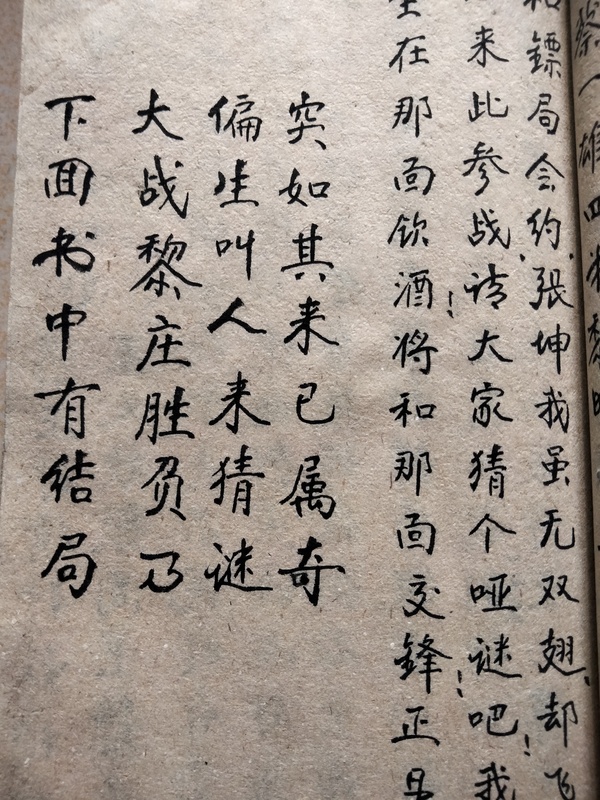 蔡八雄四
和镖局会约、張坤我虽无双翅、却飞
来此参战、请大家猜个哑谜吧！我
在那面饮酒！将和那面交鋒！正是
突如其来已属奇
偏生叫人来猜谜
大战黎庄胜负乃
下面书中有结局